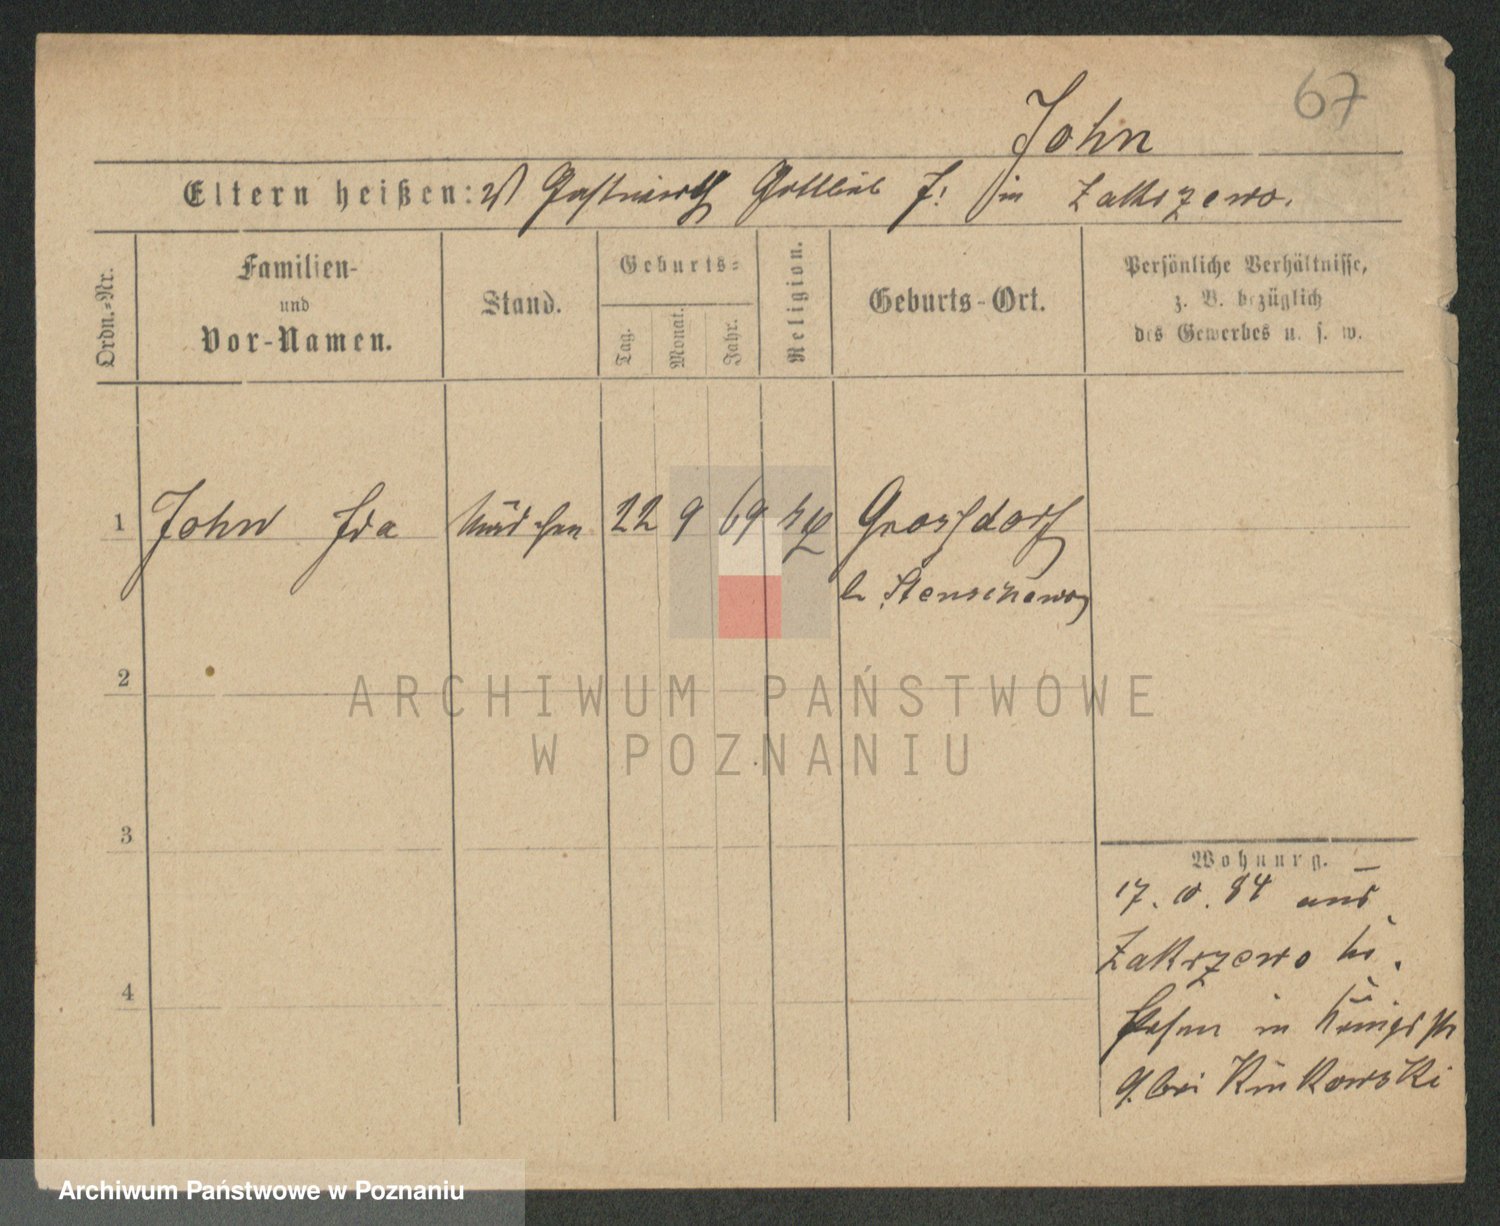 67
John
Eltern heißen: Gastwirth Gottlieb J. in Zakrzewo.
Ordn.-Nr.
Familien-
und
Vor-Namen.
Stand.
Geburts-
Tag.
Monat.
Jahr.
Religion.
Geburts-Ort.
Persönliche Verhältnisse,
z. B. bezüglich
des Gewerbes u. s. w.
1 John Ida Mädchen 22 9 69 Grossdorf
b. Stenschewo
2
3
4
Wohnung.
17. 84 aus
Zakrzewo
in Königstr
9 bei
ARCHIWUM PAŃSTWOWE
W POZNANIU
Archiwum Państwowe w Poznaniu